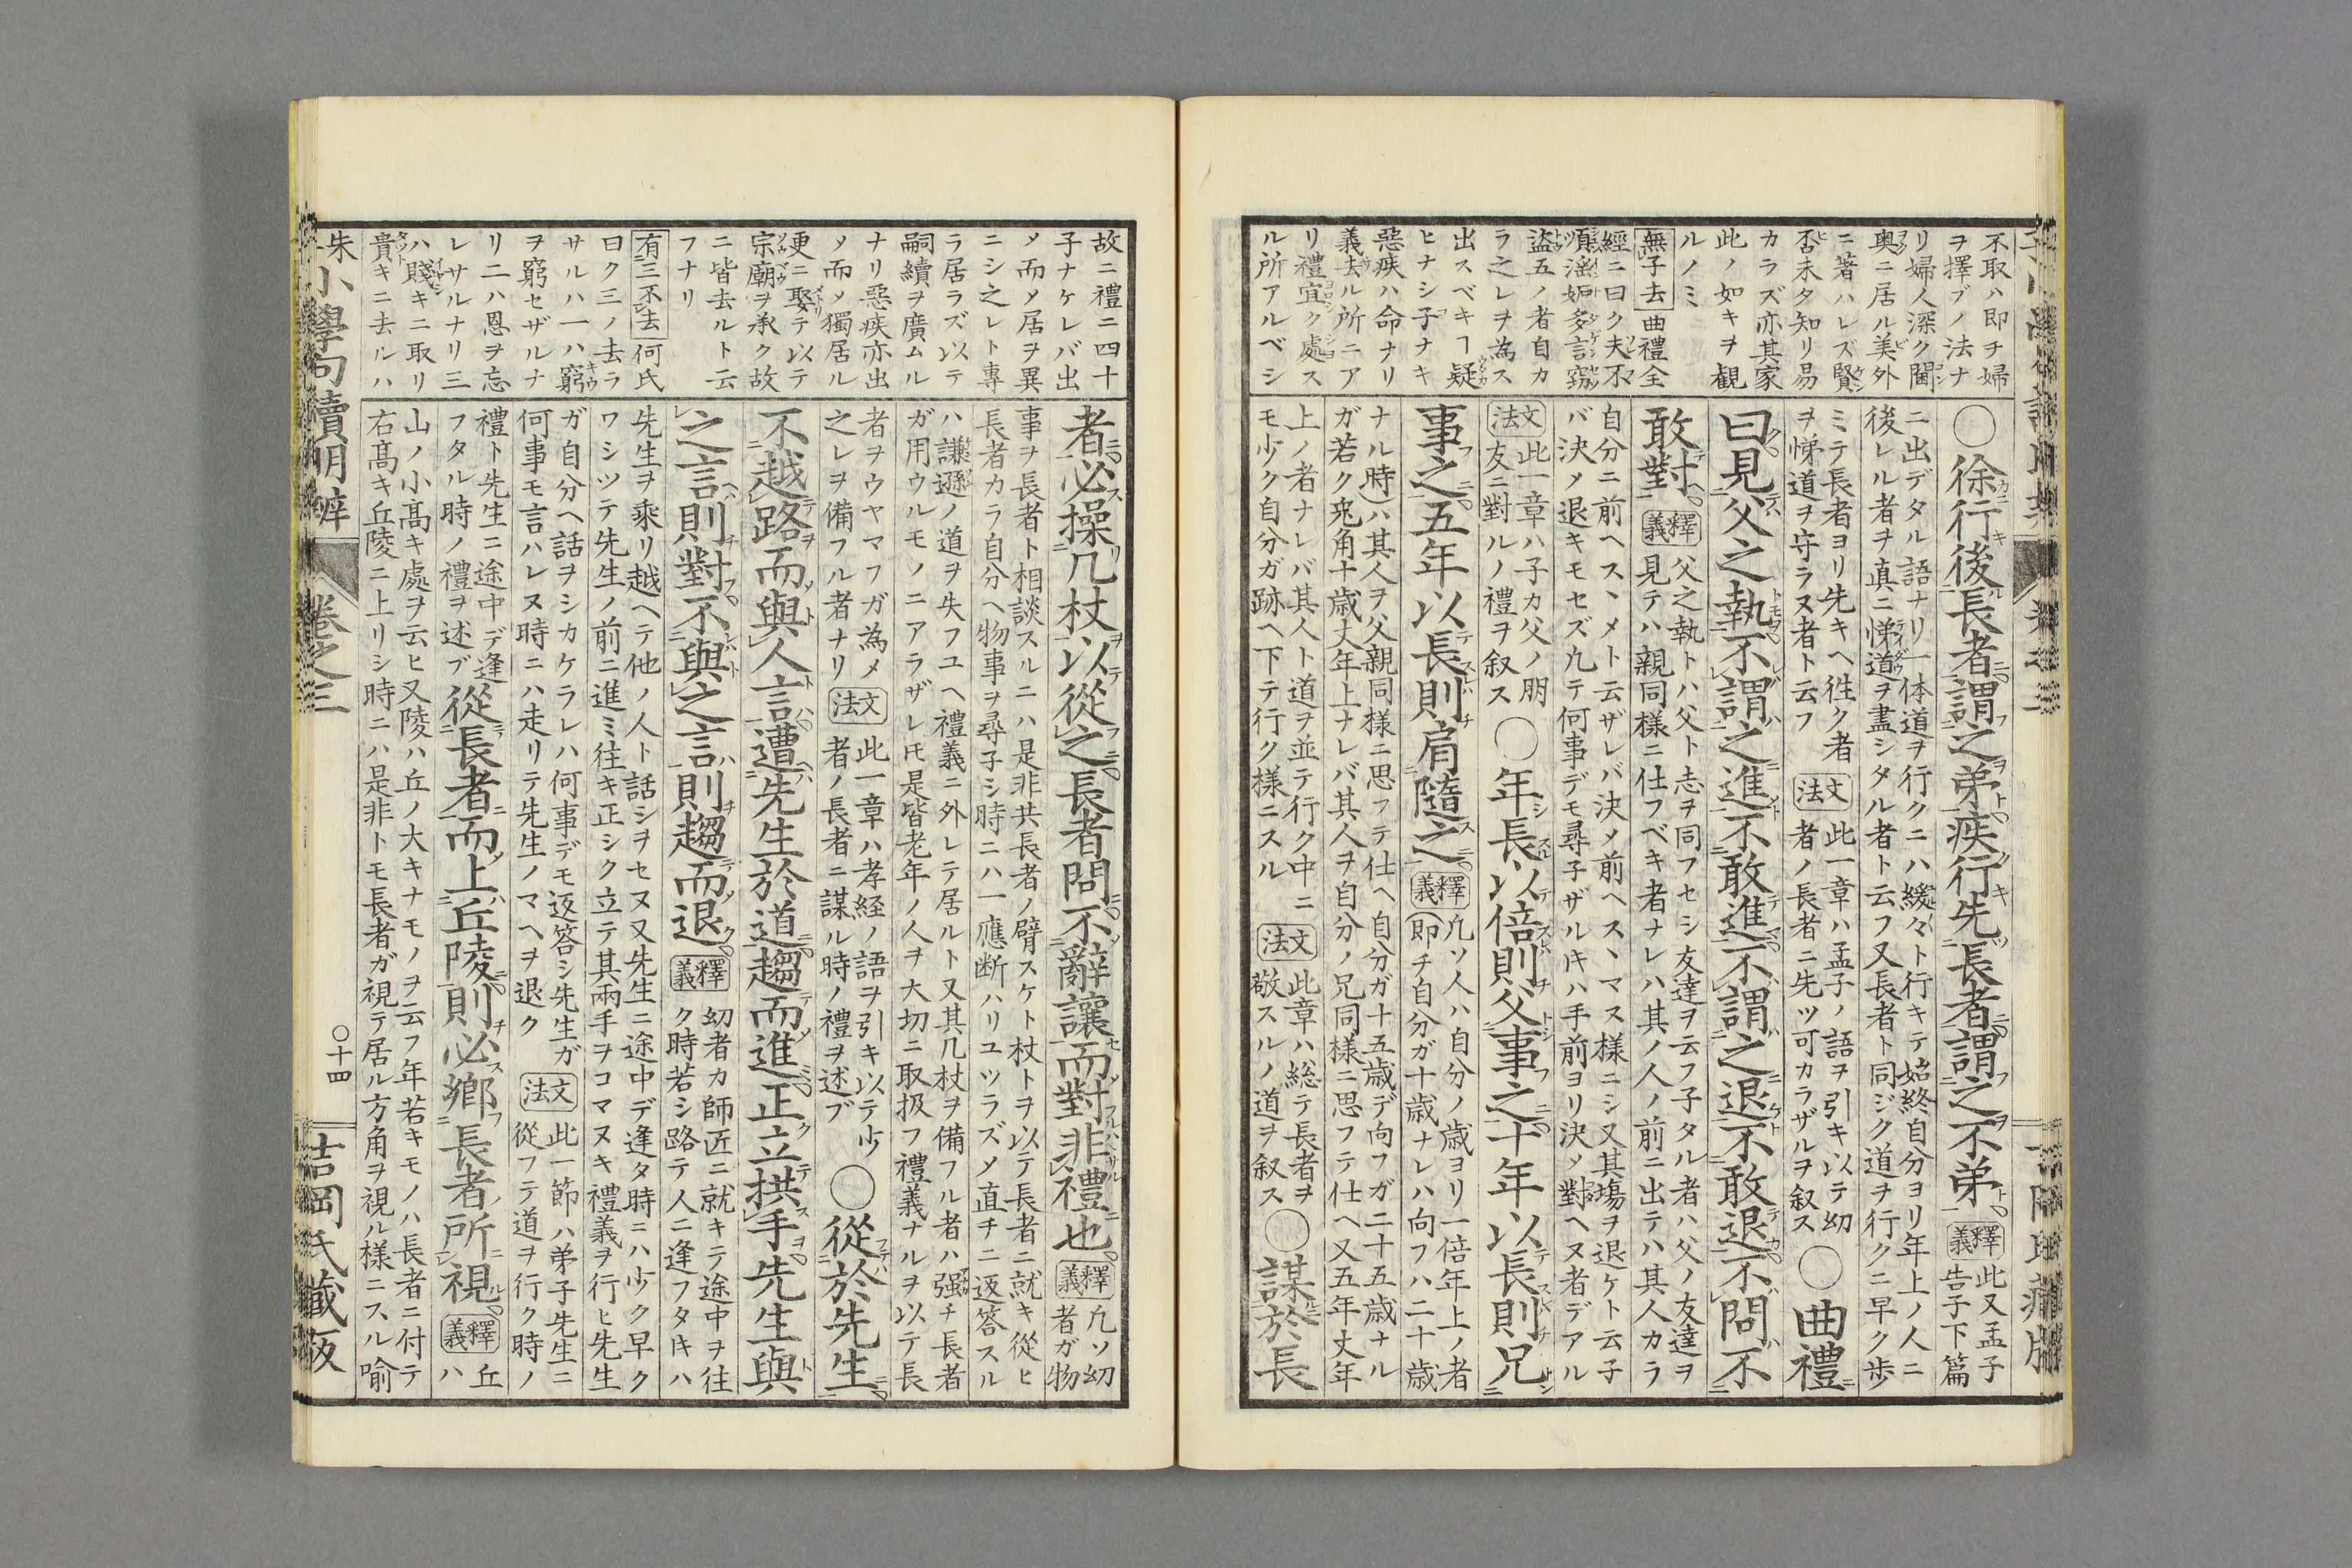 不取ハ即チ婦
ヲ擇ブノ法ナ
リ婦人深ク閫
奥ニ居ル美外
ニ著ハレズ賢
否未タ知リ易
カラズ亦其家
此ノ如キヲ観
ルノミ
無子去 曲禮全
經ニ曰ク夫不
順滛妬多言竊
盗五ノ者自カ
ラ之レヲ為ス
出スベキヿ疑
ヒナシ子ナキ
惡疾ハ命ナリ
義去ル所ニア
リ禮宜ク處ス
ル所アルベシ
〇徐行後長者謂之弟疾行先長者謂之不弟 釋義 此又孟子告子下篇
ニ出デタル語ナリ一体道ヲ行クニハ緩々ト行キテ始終自分ヨリ年上ノ人ニ
後レル者ヲ真ニ悌道ヲ盡シタル者ト云フ又長者ト同ジク道ヲ行クニ早ク歩
ミテ長者ヨリ先キヘ徃ク者ヲ悌道ヲ守ラヌ者ト云フ 文法 此一章ハ孟子ノ語ヲ引キ以テ幼者ノ長者ニ先ツ可カラザルヲ叙ス 〇曲禮
曰見父之執不謂之進不敢進不謂之退不敢退不問不
敢對 釋義 父之執トハ父ト志ヲ同フセシ友達ヲ云フ子タル者ハ父ノ友達ヲ見テハ親同様ニ仕フベキ者ナレハ其ノ人ノ前ニ出テハ其人カラ
自分ニ前ヘスヽメト云ザレバ決メ前ヘスヽマス様ニシ又其塲ヲ退ケト云子
バ決メ退キモセズ凢テ何事デモ尋子ザル𪜈ハ手前ヨリ決メ對ヘヌ者デアル
文法 此一章ハ子カ父ノ朋友ニ對ルノ禮ヲ叙ス 〇年長以倍則父事之十年以長則兄
事之五年以長則肩隨之 釋義 凢ソ人ハ自分ノ歳ヨリ一倍年上ノ者(即チ自分ガ十歳ナレハ向フハ二十歳
ナル時)ハ其人ヲ父親同様ニ思フテ仕ヘ自分ガ十五歳デ向フガ二十五歳ナル
ガ若ク皃角十歳丈年上ナレバ其人ヲ自分ノ兄同様ニ思フテ仕ヘ又五年丈年
上ノ者ナレバ其人ト道ヲ並テ行ク中ニモ少ク自分ガ跡ヘ下テ行ク様ニスル 文法 此章ハ総テ長者ヲ敬スルノ道ヲ叙ス 〇謀於長
故ニ禮ニ四十
子ナケレバ出
メ而メ居ヲ異
ニシ之レト專
ラ居ラズ以テ
嗣續ヲ廣ムル
ナリ惡疾亦出
メ而メ獨居ル
更ニ娶テ以テ
宗廟ヲ承ク故
ニ皆去ルト云
フナリ
有三不去 何氏
曰ク三ノ去ラ
サルハ一ハ窮
ヲ窮セザルナ
リ二ハ恩ヲ忘
レサルナリ三
ハ賤キニ取リ
貴キニ去ルハ
者必操几杖以從之長者問不辭讓而對非禮也 釋義 凢ソ幼者ガ物
事ヲ長者ト相談スルニハ是非共長者ノ臂スケト杖トヲ以テ長者ニ就キ從ヒ
長者カラ自分ヘ物事ヲ尋子シ時ニハ一應断ハリユツラズメ直チニ返答スル
ハ謙遜ノ道ヲ失フユヘ禮義ニ外レテ居ルト又其几杖ヲ備フル者ハ强チ長者
ガ用ウルモノニアラザレ𪜈是皆老年ノ人ヲ大切ニ取扱フ禮義ナルヲ以テ長
者ヲウヤマフガ為メ之レヲ備フル者ナリ 文法 此一章ハ孝経ノ語ヲ引キ以テ少者ノ長者ニ謀ル時ノ禮ヲ述ブ 〇從於先生
不越路而與人言遭先生於道趨而進正立拱手先生與
之言則對不與之言則趨而退 釋義 幼者カ師匠ニ就キテ途中ヲ往ク時若シ路テ人ニ逢フタ𪜈ハ
先生ヲ乘リ越ヘテ他ノ人ト話シヲセヌ又先生ニ途中デ逢タ時ニハ少ク早ク
ワシツテ先生ノ前ニ進ミ往キ正シク立テ其兩手ヲコマヌキ禮義ヲ行ヒ先生
ガ自分ヘ話ヲシカケラレハ何事デモ返答シ先生ガ何事モ言ハレヌ時ニハ走リテ先生ノマヘヲ退ク 文法 此一節ハ弟子先生ニ從フテ道ヲ行ク時ノ
禮ト先生ニ途中デ逢フタル時ノ禮ヲ述ブ 從長者而上丘陵則必鄉長者所視 釋義 丘ハ
山ノ小髙キ處ヲ云ヒ又陵ハ丘ノ大キナモノヲ云フ年若キモノハ長者ニ付テ
右髙キ丘陵ニ上リシ時ニハ是非トモ長者ガ視テ居ル方角ヲ視ル様ニスル喻
小學句讀明辨 卷之三 〇十四 吉岡氏藏版